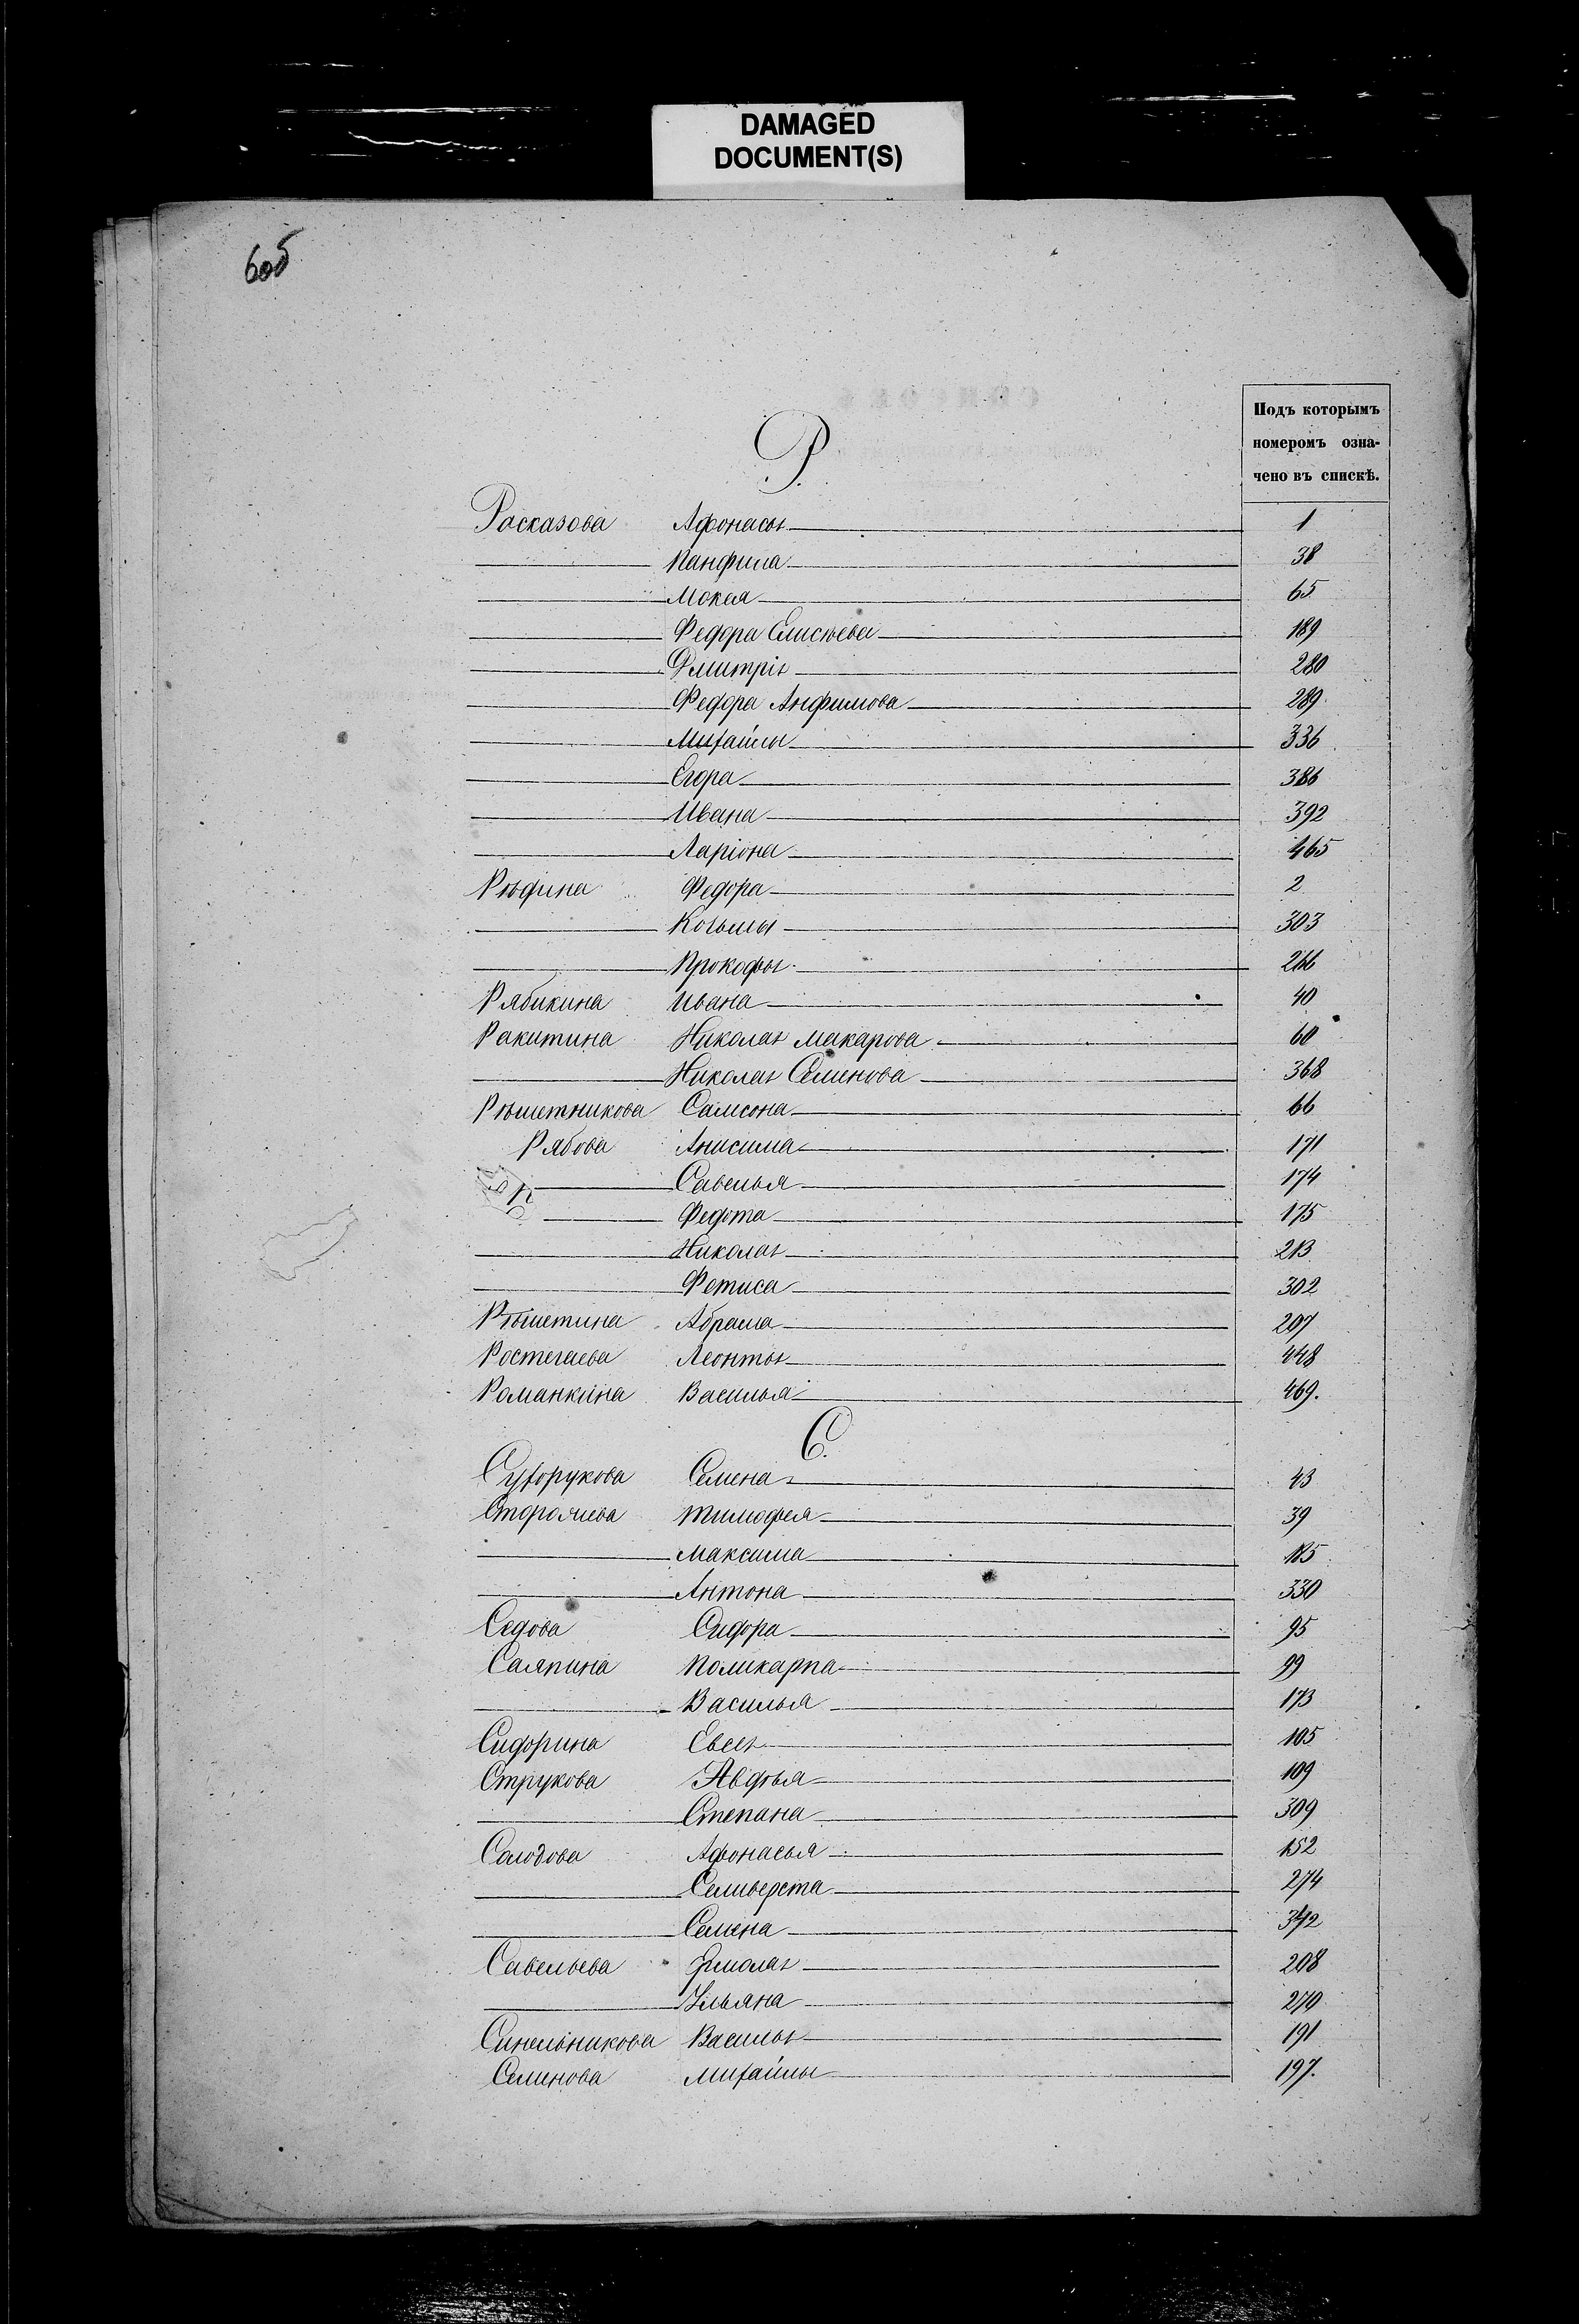 DAMAGED
DOCUMENT(S)
6об
Подъ которымъ
номеромъ озна-
чено въ спискѣ.
Р.
Расказова Афонасья 1
Панфила 38
Мокея 65
Федора Елисѣева 189
Дмитрія 280
Федора Анфимова 289
Михайлы 336
Егора 386
Ивана 392
Ларіона 465
Рѣдина Федора 2
Козьмы 303
Прокофья 266
Рябикина Ивана 40
Ракитина Николая Макарова 60
Николая Семенова 368
Рѣшетникова Самсона 66
Рябова Анисима 171
Савелья 174
Федота 175
Николая 213
Фетиса 302
Рѣшетина Абрама 207
Ростегаева Леонтья 448
Романкина Василья 469.
С.
Сухорукова Семена 43
Сторожева Тимофея 39
Максима 185
Антона 330
Седова Сидора 95
Саяпина Поликарпа 99
Василья 173
Сидорина Евсея 105
Струкова Авдѣя 109
Степана 309
Солодова Афонасья 152
Селиверста 274
Семена 342
Савельева Ермолая 208
Ульяна 270
Синельникова Василья 191
Семенова Михайлы 197.